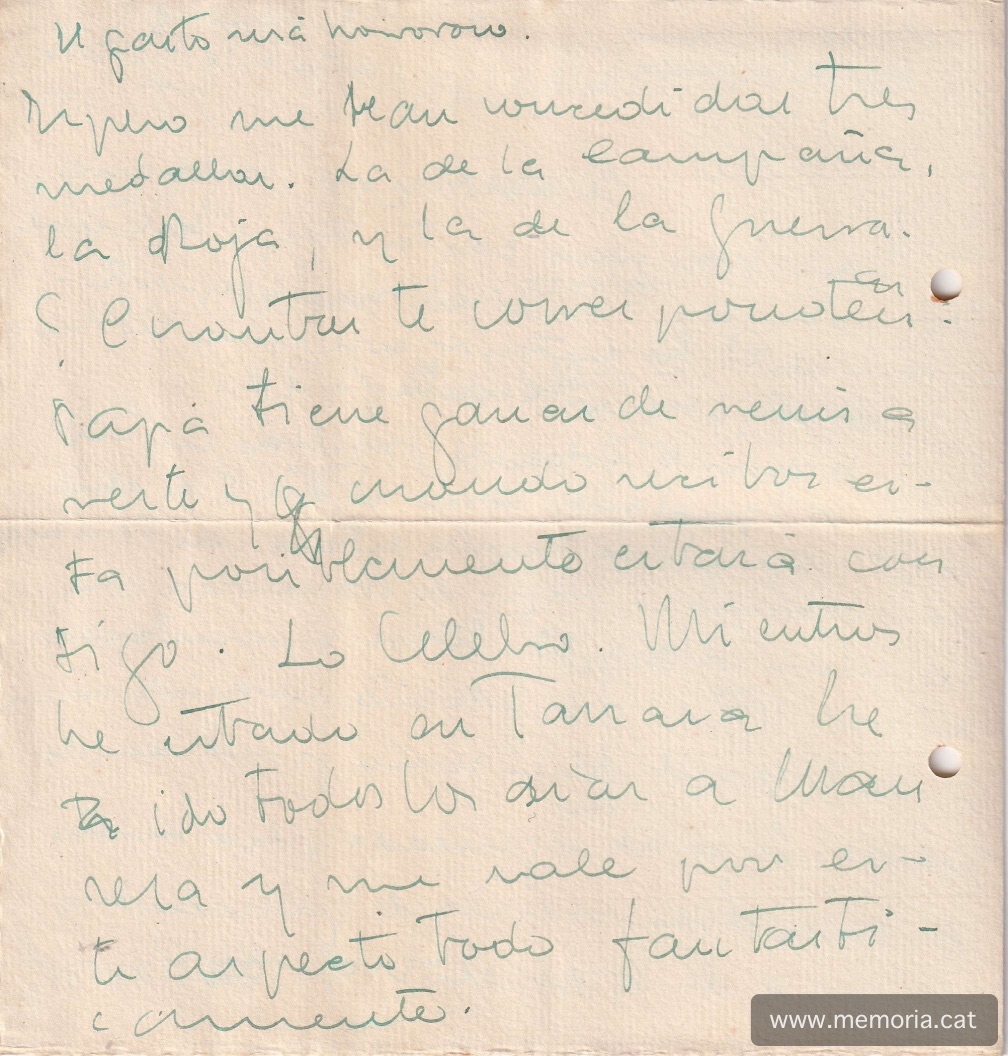 El gasto será horroroso.
Espero me sean concedidas tres
medallas. La de la Campaña,
la Roja, y la de la guerra.
¿Cuantas te corresponderán?
Papá tiene ganas de venir a
verte y cuando recibas es-
ta posiblemente estará con
tigo. Lo Celebro. Mientras
he estado en Tarrasa he
ido todos los dias a Man
resa y me sale por es-
te aspecto todo fantasti-
camente.
www.memoria.cat